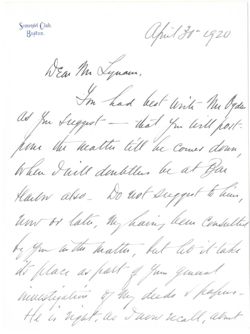 Somerset Club,
Boston.
April 30th 1920
Dear Mr Lynam,
You had best write Mr Ogden
as you suggest — that you will post-
pone the matter till he comes down,
when I will doubtless be at Bar
Harbor also. Do not suggest to him,
now or later, my having been consulted
by you in the matter, but let it take
its place as part of your general
investigation of my deeds & papers.
He is right, as I now recall, about